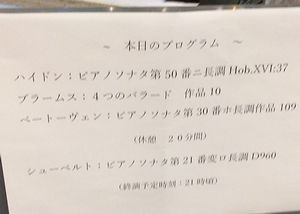 ～ 本日のプログラム ～
ハイドン：ピアノソナタ第50番ニ長調Hob.XVI:37
ブラームス：４つのバラード 作品10
ベートーヴェン：ピアノソナタ第30番ホ長調作品109
（休憩 ２０分間）
シューベルト：ピアノソナタ第21番変ロ長調D960
（終演予定時刻：21時頃）